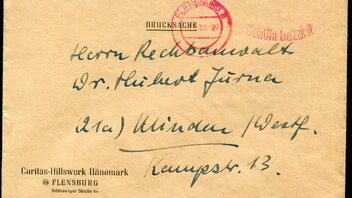 DRUCKSACHE
FLENSBURG
Gebühr bezahlt
Herrn Rechtsanwalt
Dr. Hubert Jurna
(21a) Minden /Westf.
Kampstr. 13.
Caritas-Hilfswerk Dänemark
FLENSBURG
Schleswiger Straße